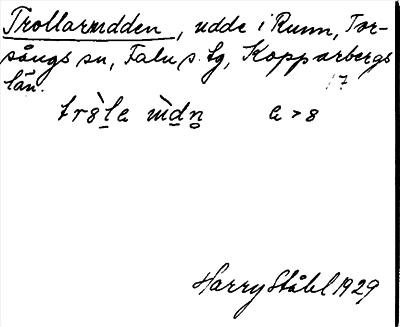 Trollarudden, udde i Runn, Tor-
sångs sn, Falu s. tg, Kopparbergs
län. 17
Harry Ståhl 1929